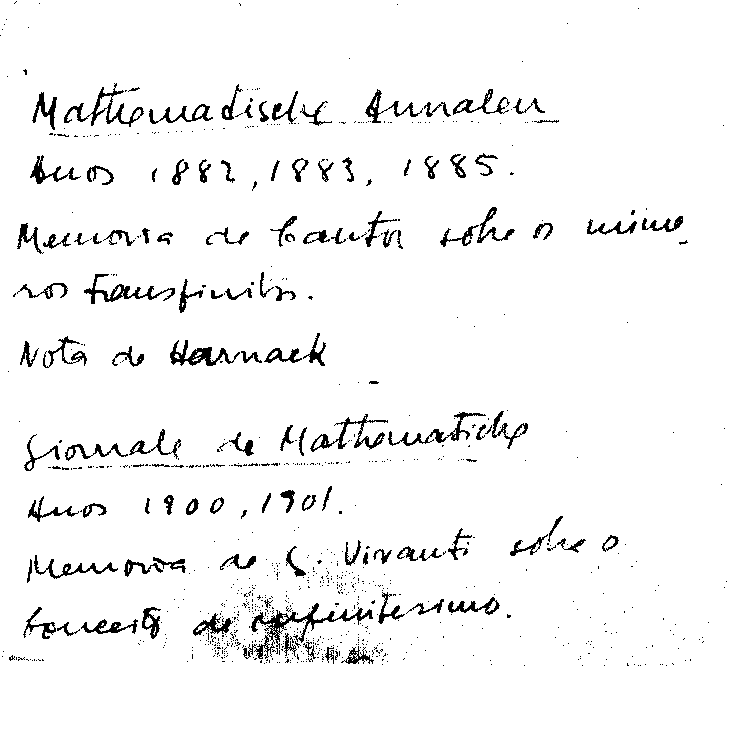 Mathematische Annalen
Anos 1882, 1883, 1885.
Memoria de Cantor sobre os nume-
ros transfinitos.
Nota de Harnack
Giornale de Mathematiche
Anos 1900, 1901.
Memoria de G. Vivanti sobre o
conceito de infinitesimo.